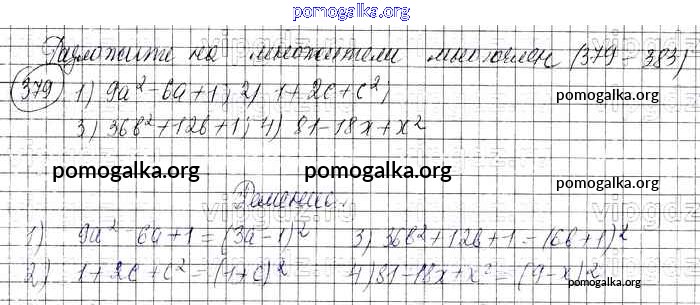 pomogalka.org
Разложите на множители многочлен (379-383)
379 1) 9a² - 6a + 1; 2) 1 + 2c + c²;
pomogalka.org
3) 36b² + 12b + 1; 4) 81 - 18x + x²
pomogalka.org pomogalka.org
pomogalka.org
Решение.
1) 9a² - 6a + 1 = (3a - 1)² 3) 36b² + 12b + 1 = (6b + 1)²
2) 1 + 2c + c² = (1 + c)² 4) 81 - 18x + x² = (9 - x)²
pomogalka.org